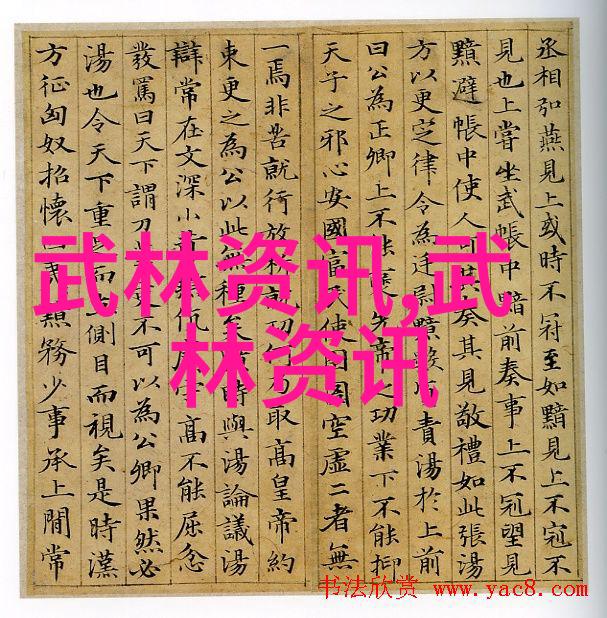 丞相弘燕見上或時不冠至如黯見上不冠不
見也上嘗坐武帳中黯前奏事上不冠望見
黯避帳中使人可其奏其見敬禮如此張湯
方以更定律令為廷尉黯數質責湯於上前
曰公為正卿上不能襃先帝之功業下不能抑
天子之邪心安國富民使囹圄空虛二者無
一焉非苦就行放析就功何乃取高皇帝約
束更之為公以此無種矣黯時與湯論議湯
辯常在文深小苛黯伉厲守高不能屈忿
發罵曰天下謂刀筆吏不可以為公卿果然必
湯也令天下重足而立側目而視矣是時漢
方征匈奴招懷四夷黯務少事承上間常
武林资讯,武
林资讯
书法欣赏 www.yac8.com